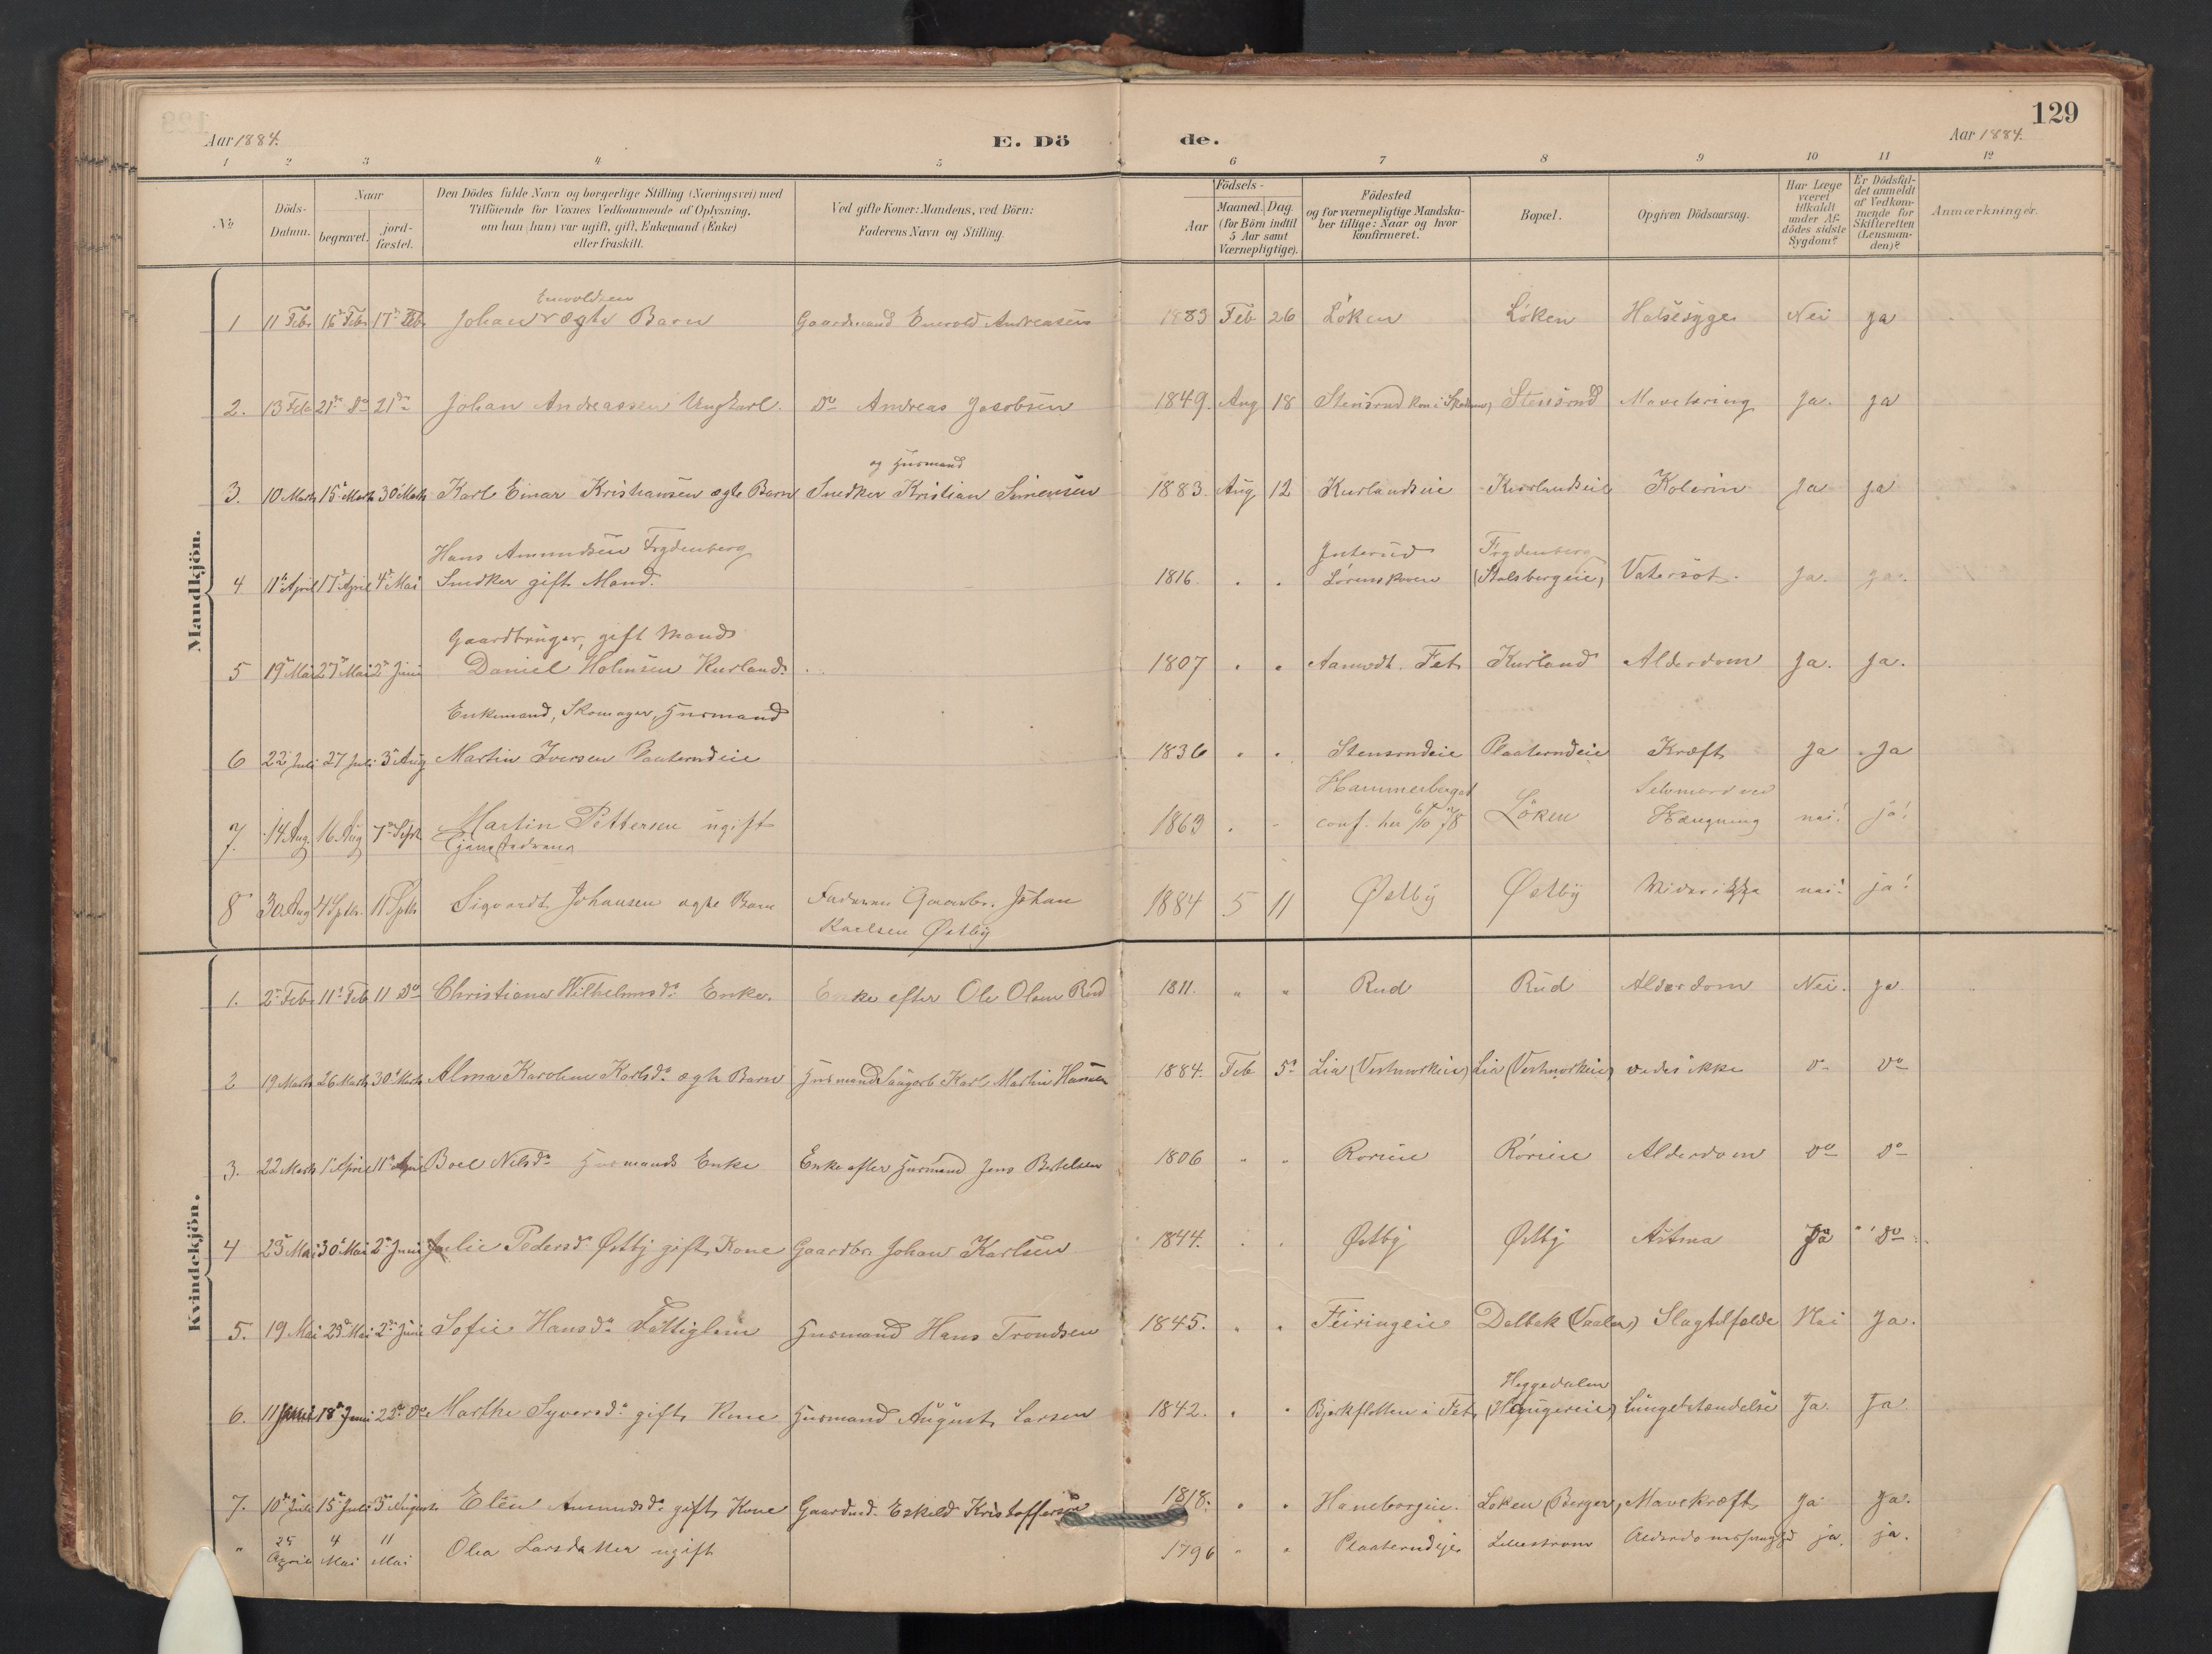 129
Aar 1884.
E. Dö
de.
Aar 1884.
1 2 3 4 5 6 7 8 9 10 11 12
No
Döds-Datum.
Naar
begravet.
jord-fæstet.
Den Dödes fulde Navn og borgerlige Stilling (Næringsvei) med
Tilföiende for Voxnes Vedkommende af Oplysning,
om han (hun) var ugift, gift, Enkemand (Enke)
eller fraskilt.
Ved gifte Koner: Mandens, ved Börn:
Faderens Navn og Stilling.
Födsels-
Aar
Maaned. Dag.
(for Börn indtil
5 Aar samt
Værnepligtige).
Födested
og for værnepligtige Mandska-
ber tillige: Naar og hvor
konfirmeret.
Bopæl.
Opgiven Dödsaarsag.
Har Læge
været
tilkaldt
under Af-
dödes sidste
Sygdom?
Er Dödsfal-
det anmeldt
af Vedkom-
mende for
Skifteretten
(Lensman-
den)?
Anmærkninger.
Mandkjön.
Enevoldsen
1 11 Feb. 16de Feb. 17de Feb. Johan ægte Barn Gaardmand Enevold Andreasen 1883 Feb 26 Löken Löken Halsesyge Nei ja
2. 13 Feb 21de Do 21de Johan Andreassen Ungkarl. Do Andreas Jacobsen 1849. Aug 18 Stensrud Stensrud Mavetæring Ja. ja
og Husmand
3. 10 Marts 15de Marts 30te Marts Karl Einar Kristiansen ægte Barn Snedker Kristian Simensen 1883. Aug 12 Kurlandseie Kurlandseie Kolerin Ja ja
Hans Amundsen Frydenberg Frydenberg
4 11te April 17de April 4de Mai Snedker gift Mand. 1816. Lörenskoven (Stalsbergeie) Vatersot. Ja. ja.
Gaardbruger, gift Mand
5 19de Mai 27de Mai 2den Juni Daniel Holmsen Kurland. 1807 Aamodt. Fet Kurland Alderdom Ja. Ja.
Enkemand, Skomager, Husmand
6 22 Juli 27 Juli 3de Aug Martin Iversen Plaaterudeie 1836 Stensrudeie Plaaterudeie Kræft Ja Ja
Hammerberget Selvmord ved
7. 14 Aug. 16. Aug 7de Sept. Martin Pettersen ugift 1863 conf. her 6/10 78 Löken Hængning nei! ja!
8 30 Aug 4 Sptbr. 11 Sptbr Sigvardt Johansen ægte Barn Faderen Gaardbr. Johan 1884 5 11 Østby Østby Vides ikke nei! ja!
Karlsen Østby
Kvindekjön.
1. 2den Feb. 11te Feb 11 Do Christiane Wilhelmsdr. Enke. Enke efter Ole Olsen Rud 1811. " " Rud Rud Alderdom Nei. ja
2 19 Marts 26 Marts 30te Marts Alma Karoline Karlsdr. ægte Barn Husmand Karl Martin Hansen 1884. Feb 5te Lia (Vestmorkeie) Lia (Vestmorkeie) vides ikke Do Do
3. 22 Marts 1 April 11te April Boel Nilsdr. Husmands Enke Enke efter Husmand Jens Bertelsen 1806 " " Roreie Röreie Alderdom Do Do
4 23de Mai 30te Mai 2den Juni Julie Pedersdr. Østby gift Kone Gaardbr. Johan Karlsen 1844. Østby Østby Astma Ja Do
5. 19 Mai 29de Mai 2den Juni Sofie Hansdr. Fattiglem Husmand Hans Trondsen 1845. Feiringeie Dalbek (Vaaler) Slagtilfælde Nei Ja.
Heggedalen
6. 11 Juni 18de Juni 22de Do Marthe Syversdr. gift Kone Husmand August Larsen 1842. Bjerkflotten i Fet (Haugereie) Lungebetændelse Ja. Ja.
7. 10de Juli 15de Juli 3de August Elen Amundsdr. gift Kone Gaardmd. Eskild Kristoffersen 1818. Haneborgeie. Løken (Berger) Mavekræft Ja Ja.
" 25 April 4 Mai 11 Mai Olea Larsdatter ugift 1796 " " Plaaterudeje Lillestrøm ja. ja.